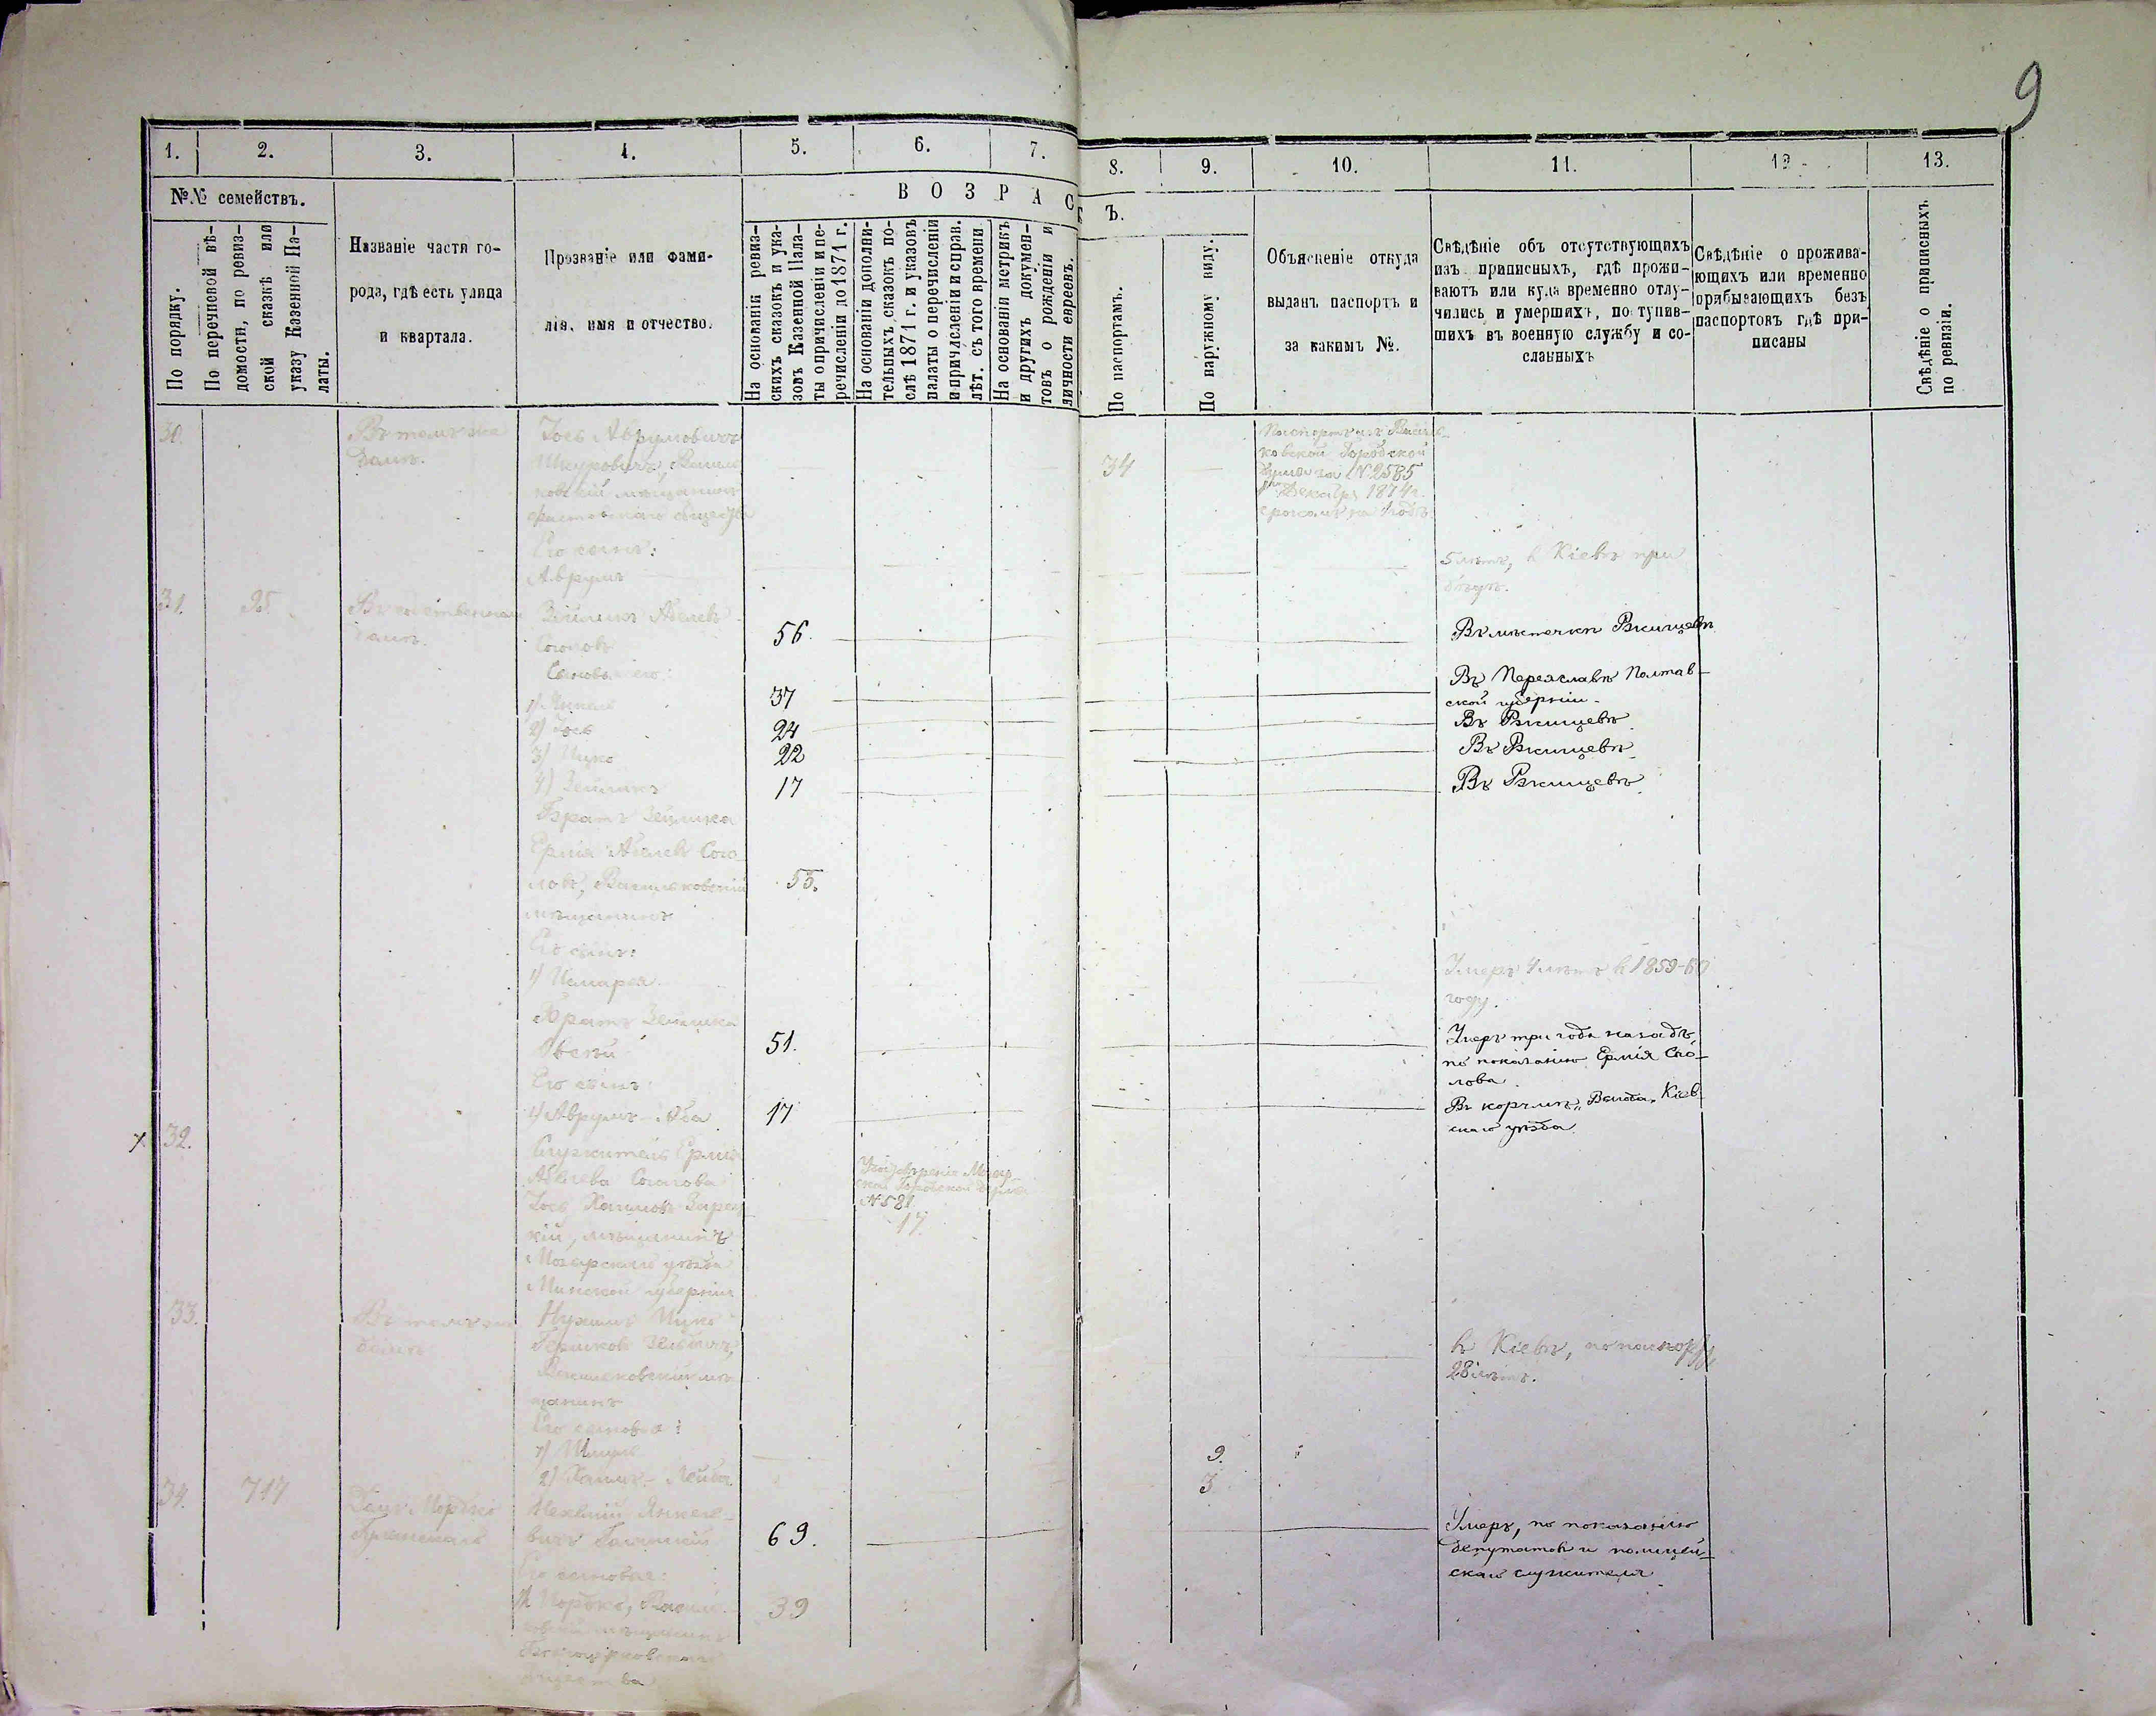 9
1.
2.
3.
4.
5.
6.
7.
8.
9.
10.
11.
12
13.
№№ семействъ.
По порядку.
По перечневой вѣ-
домости, по ревиз-
ской сказкѣ или
указу Казенной Па-
латы.
Названіе части го-
рода, гдѣ есть улица
и квартала.
Прозваніе или фами-
лія, имя и отчество.
ВОЗРАСТЪ.
На основаніи ревиз-
скихъ сказокъ и ука-
зовъ Казенной Пала-
ты о причисленіи и пе-
речисленіи до 1871 г.
На основаніи дополни-
тельныхъ сказокъ по-
слѣ 1871 г. и указовъ
палаты о перечисленіи
и причисленіи и справ.
лѣт. съ того времени.
На основаніи метрикъ
и другихъ докумен-
товъ о рожденіи и
личности евреевъ.
По паспортамъ.
По наружному виду.
Объясненіе откуда
выданъ паспортъ и
за какимъ №.
Свѣдѣніе объ отсутствующихъ
изъ приписныхъ, гдѣ прожи-
ваютъ или куда временно отлу-
чились и умершихъ, поступив-
шихъ въ военную службу и со-
сланныхъ
Свѣдѣніе о прожива-
ющихъ или временно
прибывающихъ безъ
паспортовъ гдѣ при-
писаны
Свѣдѣніе о приписныхъ
по ревизіи.
30.
Въ томъ же
домѣ.
Іось Аврумовичъ
Шкуровичъ, Васил
ковскій мѣщанинъ
фастовскаго общества
34
Паспортъ изъ Васил-
ковской Городской
Думы за № 2585
Декабря 1874 г.
срокомъ на 1 годъ
Его сынъ:
Аврумъ
5 лѣтъ, въ Кіевѣ при
31.
95
Въ собственномъ
домѣ.
Зейликъ Абелевъ
Соколовъ
56
Въ мѣстечкѣ Ржищевѣ
Сыновья его:
1) Янкель
37
Въ Переяславѣ Полтав-
ской губерніи.
2) Іось
24
Въ Ржищевѣ
3) Ицко
22
Въ Ржищевѣ
4) Зейликъ
17
Въ Ржищевѣ
Братъ Зейлика
Ермія Абелевъ Соко-
ловъ, Васильковскій
мѣщанинъ
55.
Его сынъ:
1)
Умеръ 4 лѣтъ въ 1859-60
году.
Братъ Зейлика
Овсѣй
51.
Умеръ три года назадъ,
по показанію Ермія Соко-
лова.
Его сынъ:
1) Аврумъ-Аба
17
Въ корчмѣ „Вита“ Кіев
скаго уѣзда.
х 32.
Служитель Ермія
Абелева Соколова
Іось Хаимовъ
кій, мѣщанинъ
Мозырскаго уѣзда
Минской губерніи
Удостовѣреніе Мозыр-
ской Городской Думы
№ 581
17
33.
Въ томъ же
домѣ
Ицко
Гершковъ
Васильковскій мѣ
щанинъ
въ Кіевѣ, по паспорту
28 лѣтъ.
Его сыновья:
1) Шмуль
9.
2) Хаимъ-Лейба
3
34.
717
Домъ Мордко
Нехемій Янкеле-
вичъ
69.
Умеръ, по показанію
депутатовъ и полицей-
скаго служителя
Его сыновья:
1) Мордко, Василь
ковскій мѣщанинъ
39